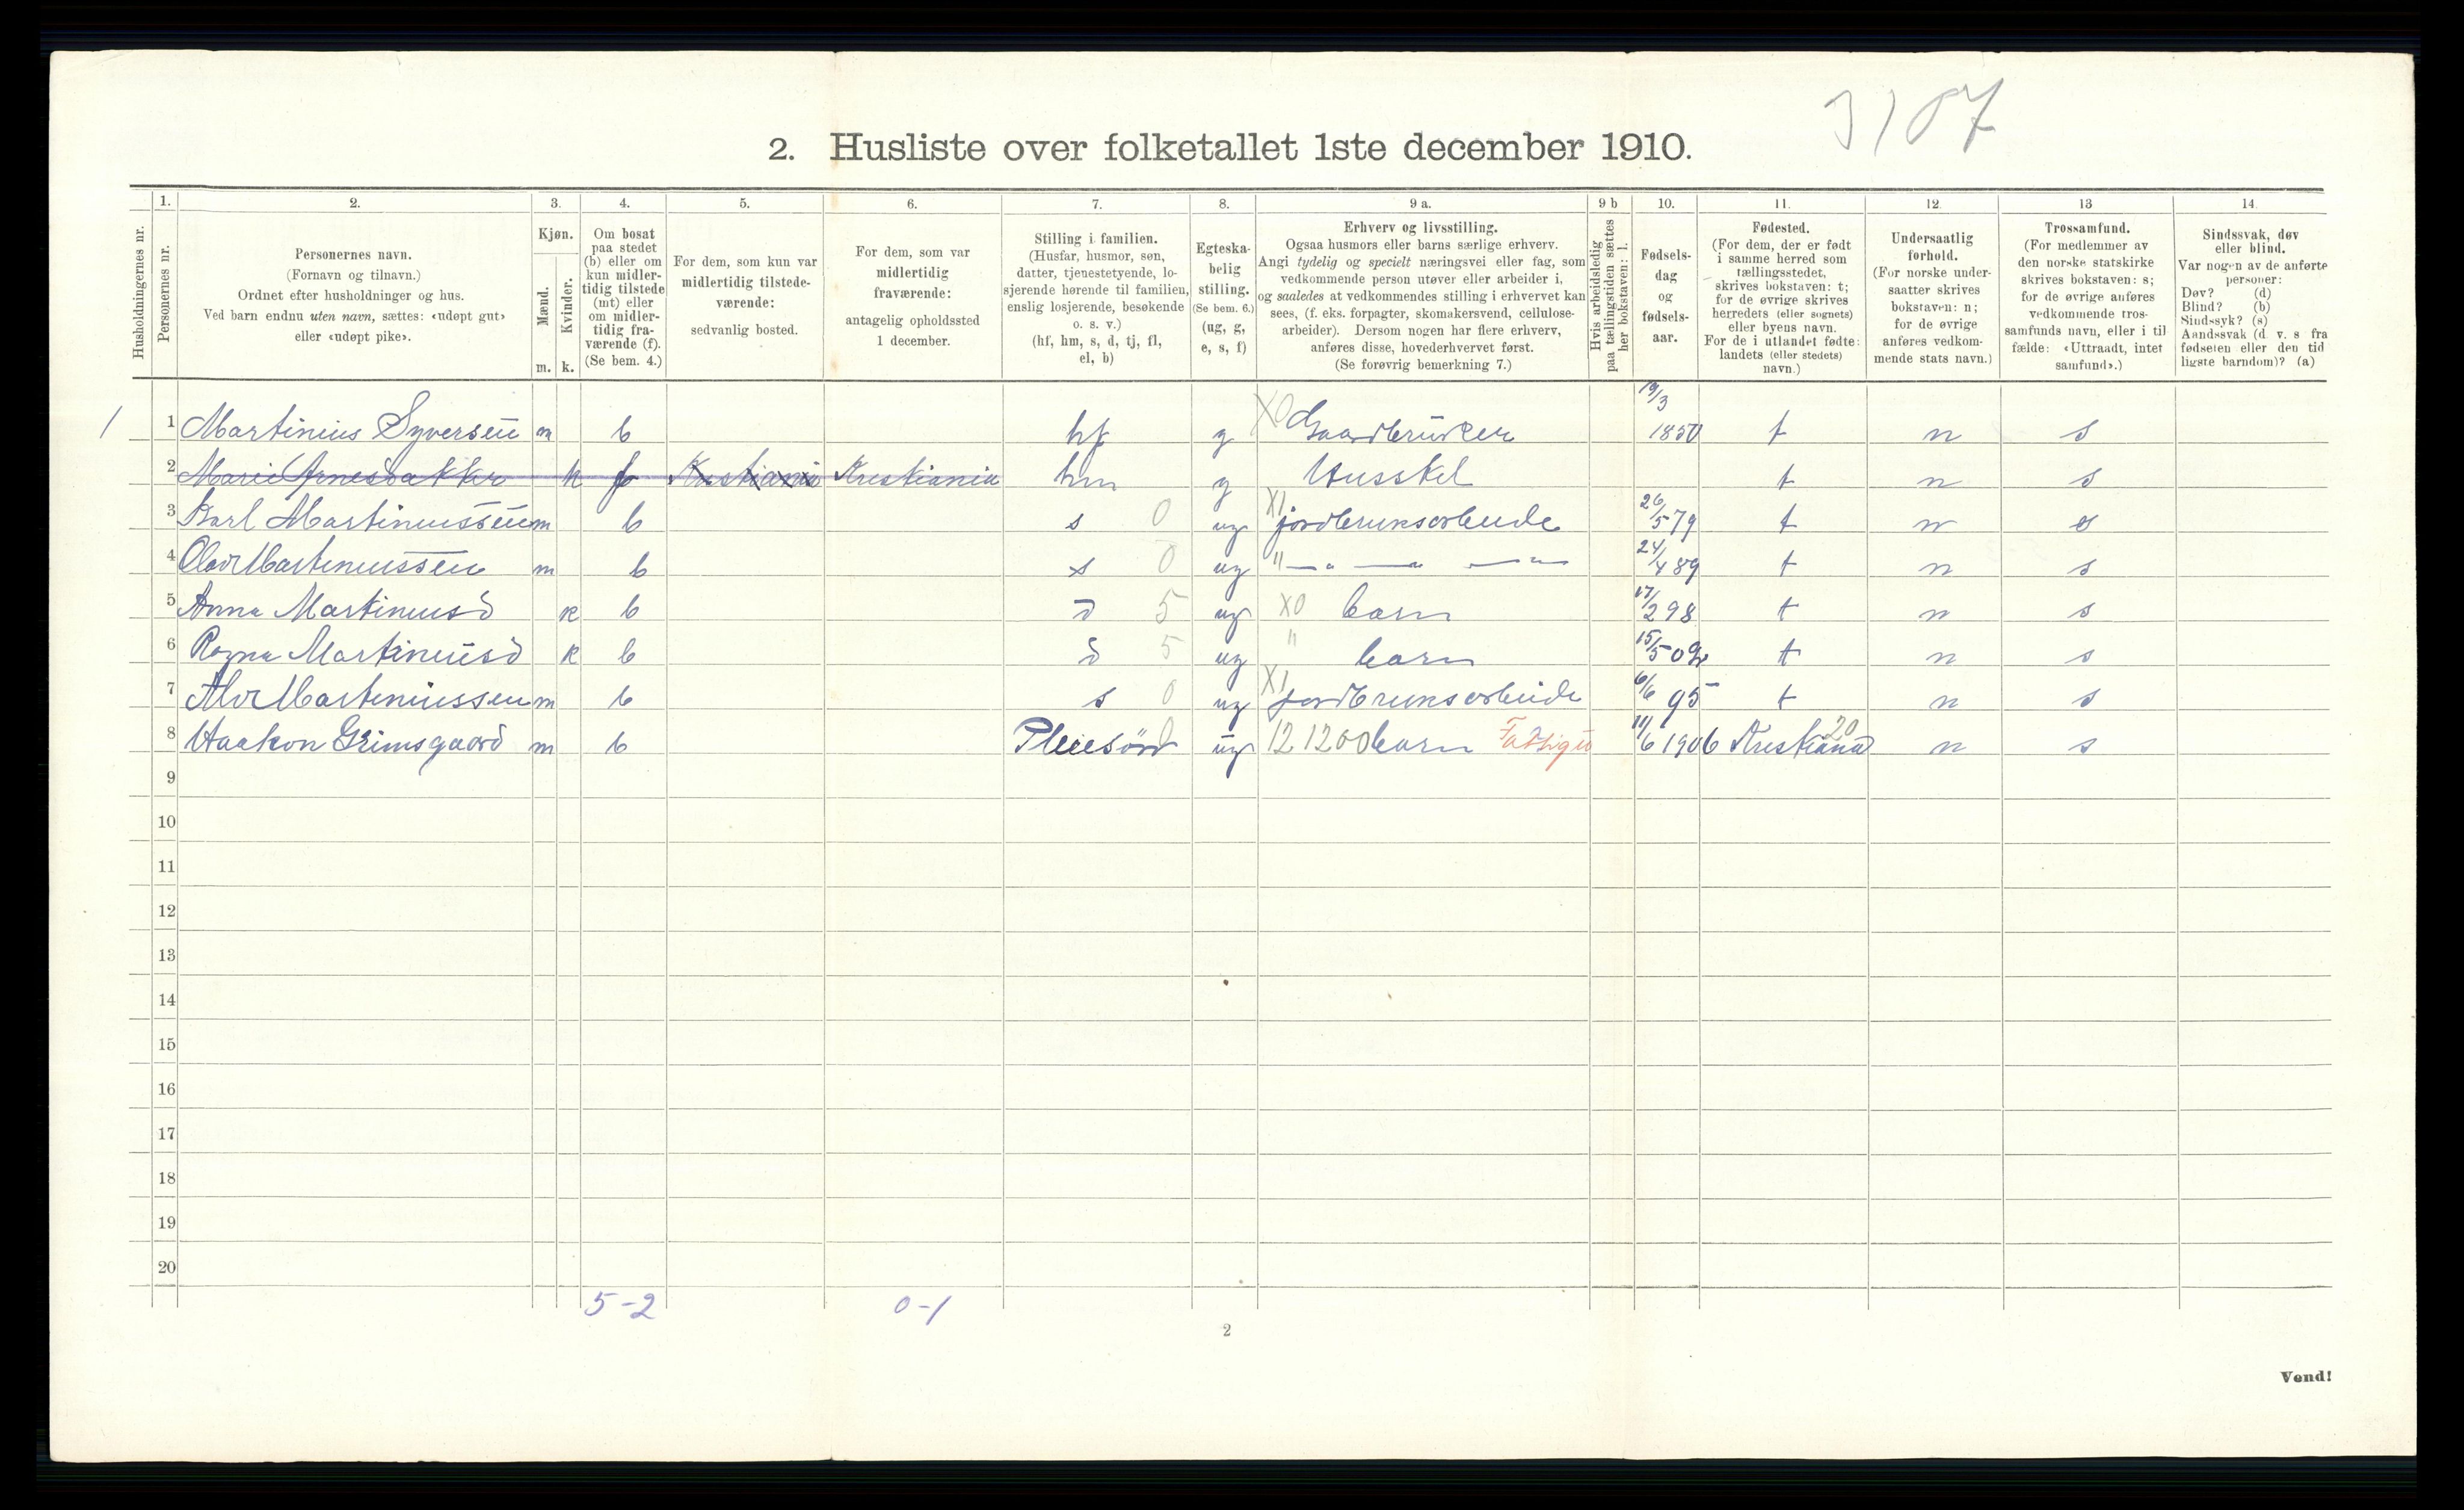 3107
2. Husliste over folketallet 1ste december 1910.
Husholdningernes nr.
1.
Personernes nr.
2.
Personernes navn.
(Fornavn og tilnavn.)
Ordnet efter husholdninger og hus.
Ved barn endnu uten navn, sættes: «udøpt gut»
eller «udøpt pike».
3.
Kjøn.
Mænd.
Kvinder.
m. k.
4.
Om bosat
paa stedet
(b) eller om
kun midler-
tidig tilstede
(mt) eller
om midler-
tidig fra-
værende (f).
(Se bem. 4.)
5.
For dem, som kun var
midlertidig tilstede-
værende:
sedvanlig bosted.
6.
For dem, som var
midlertidig
fraværende:
antagelig opholdssted
1 december.
7.
Stilling i familien.
(Husfar, husmor, søn,
datter, tjenestetyende, lo-
sjerende hørende til familien,
enslig losjerende, besøkende
o. s. v.)
(hf, hm, s, d, tj, fl,
el, b)
8.
Egteska-
belig
stilling.
(Se bem. 6.)
(ug, g,
e, s, f)
9 a.
Erhverv og livsstilling.
Ogsaa husmors eller barns særlige erhverv.
Angi tydelig og specielt næringsvei eller fag, som
vedkommende person utøver eller arbeider i,
og saaledes at vedkommendes stilling i erhvervet kan
sees, (f. eks. forpagter, skomakersvend, cellulose-
arbeider). Dersom nogen har flere erhverv,
anføres disse, hovederhvervet først.
(Se forøvrig bemerkning 7.)
9 b
Hvis arbeidsledig
paa tællingstiden sættes
her bokstaven: l.
10.
Fødsels-
dag
og
fødsels-
aar.
11.
Fødested.
(For dem, der er født
i samme herred som
tællingsstedet,
skrives bokstaven: t;
for de øvrige skrives
herredets (eller sognets)
eller byens navn.
For de i utlandet fødte:
landets (eller stedets)
navn.)
12.
Undersaatlig
forhold.
(For norske under-
saatter skrives
bokstaven: n;
for de øvrige
anføres vedkom-
mende stats navn.)
13
Trossamfund.
(For medlemmer av
den norske statskirke
skrives bokstaven: s;
for de øvrige anføres
vedkommende tros-
samfunds navn, eller i til
fælde: «Uttraadt, intet
samfund».)
14.
Sindssvak, døv
eller blind.
Var nogen av de anførte
personer:
Døv? (d)
Blind? (b)
Sindssyk? (s)
Aandssvak (d v. s fra
fødselen eller den tid
ligste barndom)? (a)
1 1 Martinius Syversen m b hf g X0 Gaardbruker 19/3 1850 t n s
2 Marie Arnesbakke k f Kristiania Kristiania hm g Husstel t n s
3 Karl Martinussen m b s 0 ug X1 jordbruksarbeide 26/5 79 t n s
4 Olav Martinussen m b s 0 ug " —"— —"— —"— 24/4 89 t n s
5 Anna Martinusd k b d 5 ug X0 barn 17/2 98 t n s
6 Ragna Martinusd k b d 5 ug " barn 15/5 02 t n s
7 Alv Martinussen m b s 0 ug X1 jordbruksarbeide 6/6 95 t n s
8 Haakon Grimsgaard m b Pleiesøn 0 ug 12 1200 barn Fattigu 11/6 1906 Kristiania 20 n s
9
10
11
12
13
14
15
16
17
18
19
20
5-2 0-1
2
Vend!